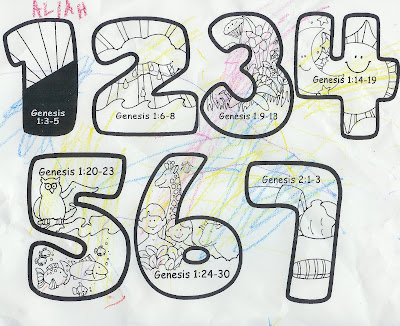 ALIAH
1 2 3 4
Genesis
1:3-5
Genesis 1:6-8
Genesis 1:9-13
Genesis 1:14-19
5 6 7
Genesis 1:20-23
Genesis 1:24-30
Genesis 2:1-3